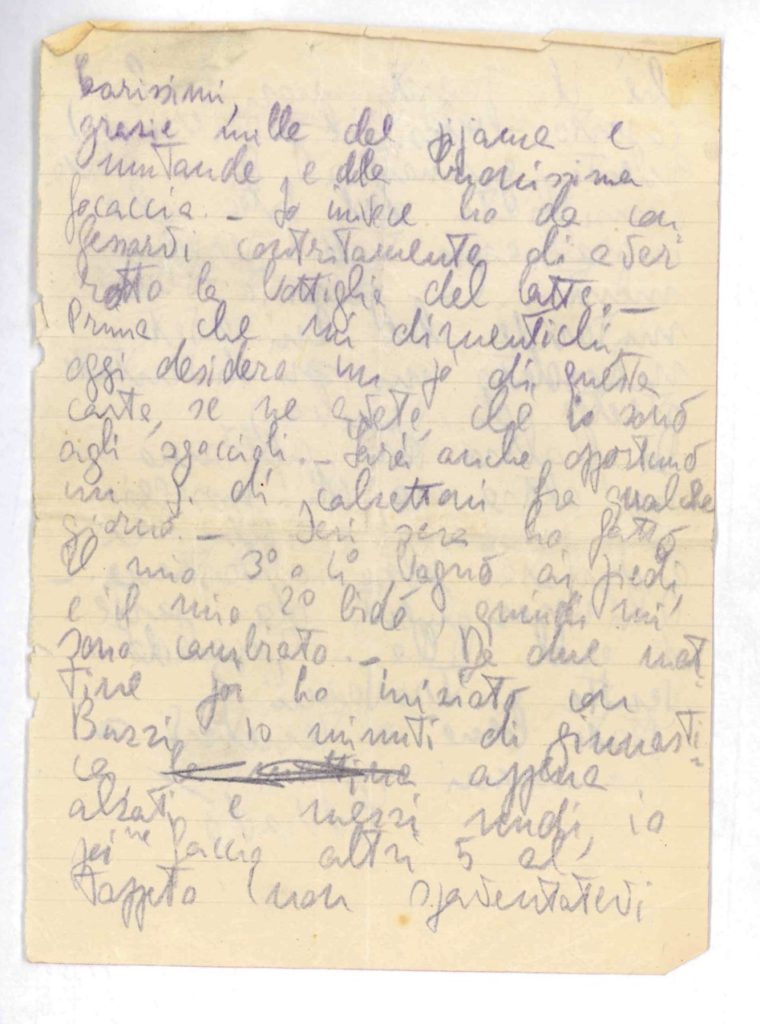 Carissimi,
grazie mille del pijama e
mutande, e della buonissima
focaccia. – Io invece ho da con
fessarvi contritamente di aver
rotto la bottiglia del latte. –
Prima che mi dimentichi,
oggi desidero un pò di questa
carta, se ne avete, che io sono
agli sgoccioli. – Sarei anche opportuno
un p. di calzettoni fra qualche
giorno. – Ieri sera ho fatto
il mio 3° o 4° bagno ai piedi,
e il mio 2° bidé, quindi mi
sono cambiato. – Da due mat=
tine poi ho iniziato con
Buzzi, 10 minuti di ginnasti=
ca appena
alzati e mezzi nudi, io
poi ne faccio altri 5 al
tappeto (non spaventatevi